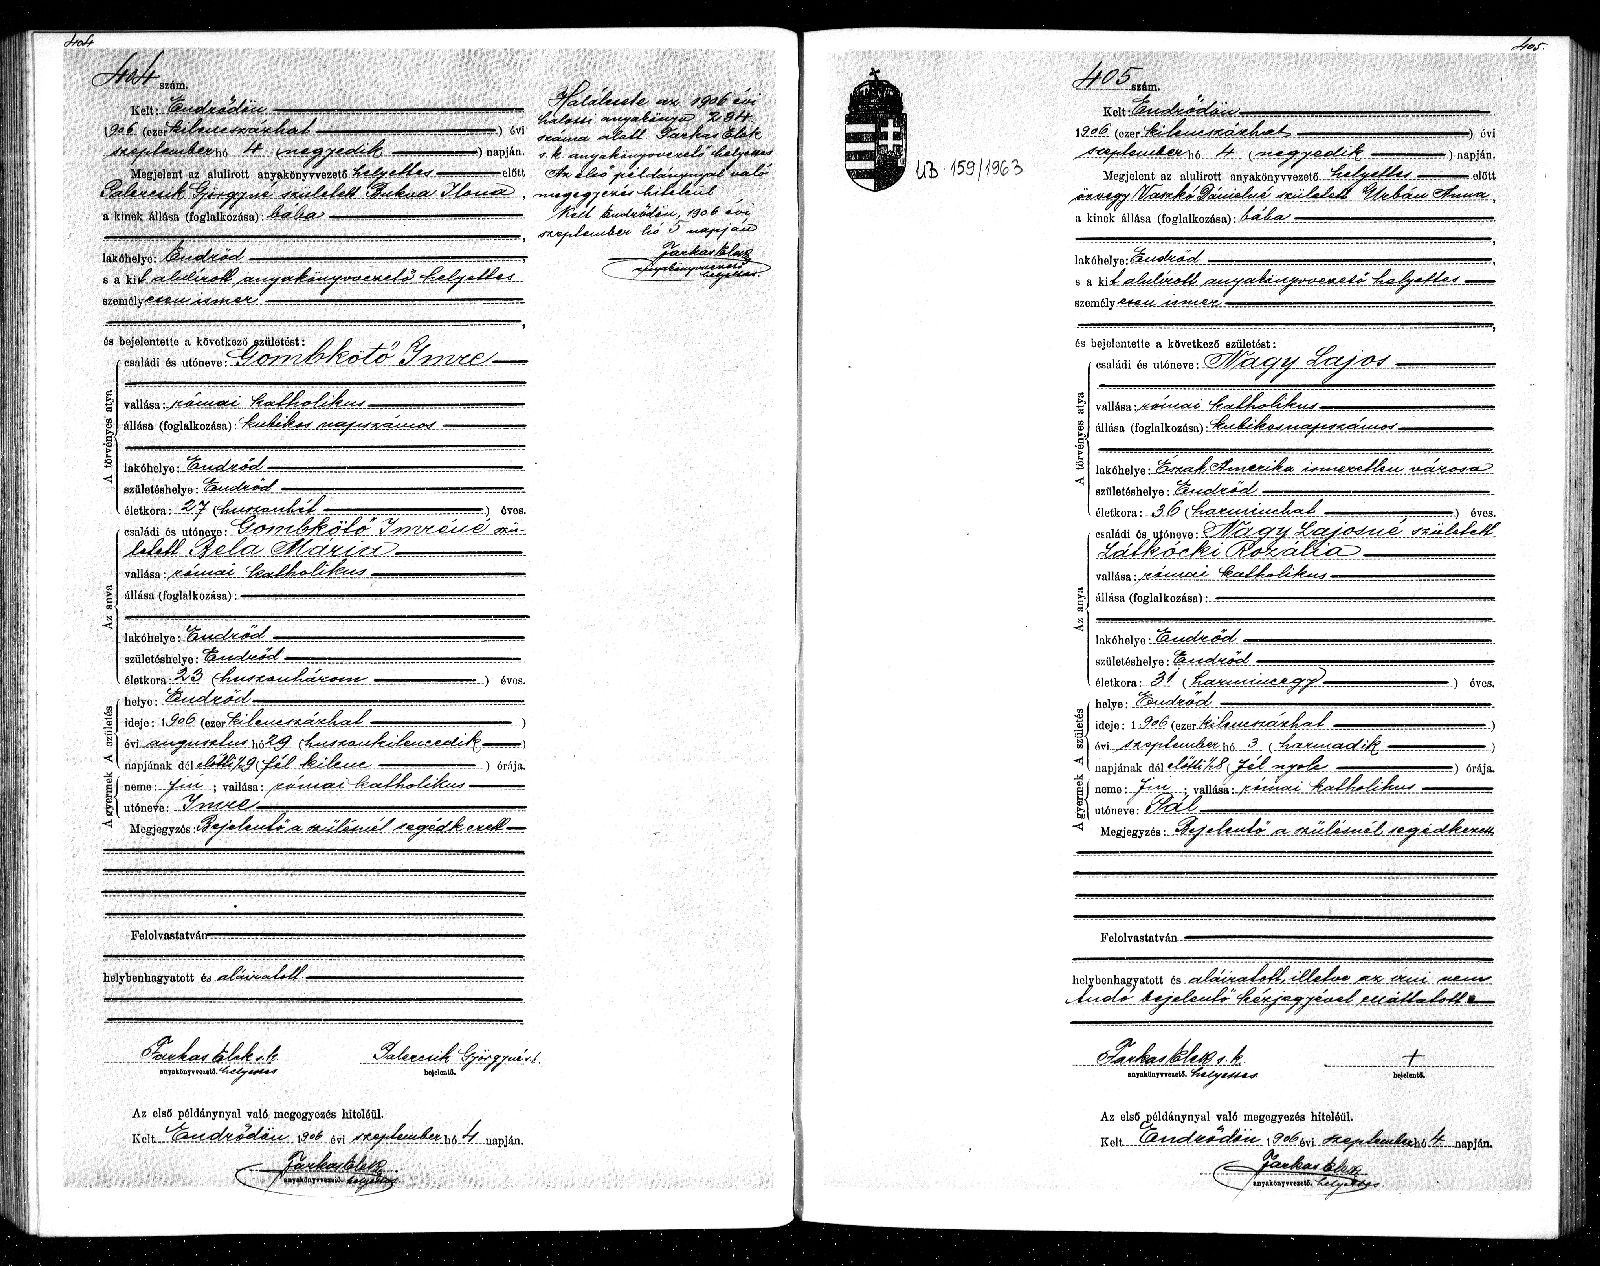 404
404 szám.
Kelt: Endrődön
1906 (ezer kilenczszázhat ) évi
szeptember hó 4 (negyedik ) napján.
Megjelent az alulirott anyakönyvvezető helyettes előtt
Palercsik Györgyné született Bukva Ilona,
a kinek állása (foglalkozása): bába
lakóhelye: Endrőd
s a kit alulírott anyakönyvvezető helyettes
személyesen ismer
és bejelentette a következő születést:
A törvényes atya
családi és utóneve: Gombkötő Imre
vallása: római katholikus
állása (foglalkozása): kubikos napszámos
lakóhelye: Endrőd
születéshelye: Endrőd
életkora: 27 (huszonhét ) éves.
Az anya
családi és utóneve: Gombkötő Imréné szü-
letett Bela Mária
vallása: római katholikus
állása (foglalkozása):
lakóhelye: Endrőd
születéshelye: Endrőd
életkora: 23 (huszonhárom ) éves.
A születés
helye: Endrőd
ideje: 1906 (ezer kilenczszázhat )
évi augusztus hó 29 (huszonkilencedik )
napjának dél előtti ½9 (fél kilenc ) órája.
A gyermek
neme: fiu ; vallása: római katholikus
utóneve: Imre
Megjegyzés: Bejelentő a szülésnél segédkezett
Felolvastatván
helybenhagyatott és aláiratott
Farkas Elek s.k.
anyakönyvvezető. helyettes
Palercsik Györgyné s.k.
bejelentő.
Az első példánynyal való megegyezés hiteléül.
Kelt Endrődön 1906 évi szeptember hó 4 napján.
Farkas Elek
anyakönyvvezető. helyettes
Haláleste az 1906 évi
halotti anyakönyv 294
száma alatt Farkas Elek
s.k. anyakönyvvezető helyettes
Az első példánynyal való
megegyezés hiteléül
Kelt Endrődön, 1906 évi
szeptember hó 5 napján
Farkas Elek
anyakönyvvezető
helyettes
405.
UB 159/1963
405 szám.
Kelt: Endrődön
1906 (ezer kilenczszázhat ) évi
szeptember hó 4 (negyedik ) napján.
Megjelent az alulirott anyakönyvvezető helyettes előtt
özvegy Vaskó Dánielné született Urbán Anna,
a kinek állása (foglalkozása): bába
lakóhelye: Endrőd
s a kit alulírott anyakönyvvezető helyettes
személyesen ismer
és bejelentette a következő születést:
A törvényes atya
családi és utóneve: Nagy Lajos
vallása: római katholikus
állása (foglalkozása): kubikosnapszámos
lakóhelye: Észak Amerika ismeretlen városa
születéshelye: Endrőd
életkora: 36 (harminchat ) éves.
Az anya
családi és utóneve: Nagy Lajosné született
Látkócki Rozália
vallása: római katholikus
állása (foglalkozása):
lakóhelye: Endrőd
születéshelye: Endrőd
életkora: 31 (harmincegy ) éves.
A születés
helye: Endrőd
ideje: 1906 (ezer kilenczszázhat )
évi szeptember hó 3 (harmadik )
napjának dél előtti ½8 (fél nyolc ) órája.
A gyermek
neme: fiu ; vallása: római katholikus
utóneve: Pál
Megjegyzés: Bejelentő a szülésnél segédkezett
Felolvastatván
helybenhagyatott és aláiratott, illetve az irni nem
tudó bejelentő kézjegyével elláttatott
Farkas Elek s.k.
anyakönyvvezető. helyettes
+
bejelentő.
Az első példánynyal való megegyezés hiteléül.
Kelt Endrődön 1906 évi szeptember hó 4 napján.
Farkas Elek
anyakönyvvezető. helyettes